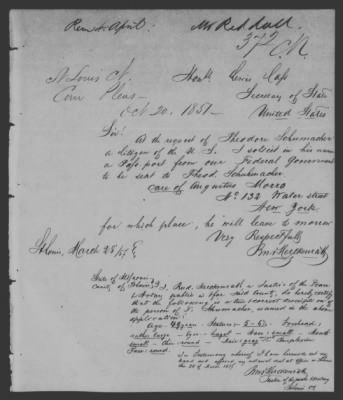 Rem 4 April. Mr Riddall
372 C.N.
St Louis Ct. Honbl Lewis Cass
Com Pleas Secretary of State
Oct 20. 1851 United States
Sir:
At the request of Theodore Schumacher
a citizen of the U. S. I solicit in his name
a Passport from our Federal Government
to be sent to Theod. Schuhmacher
care of Augustus Morro
No 132 Water street
New York
for which place, he will leave to morrow
Very Respectfully
St Louis, March 28
State of Missouri
County of St Louis I, Rud. a Justice of the Peace
& Notary public in & for said County, do hereby certify
that the following is a true & correct description of
the person of T. Schumacher, named in the above
application:
Age 42 years Stature 5 - Forehead,
rather large - Eyes - Nose - small - Mouth
small - Chin round - Hair gray Complexion
Face round.
In testimony whereof I have hereunto set my
hand and affixed my official seal at office in
the 28 of March